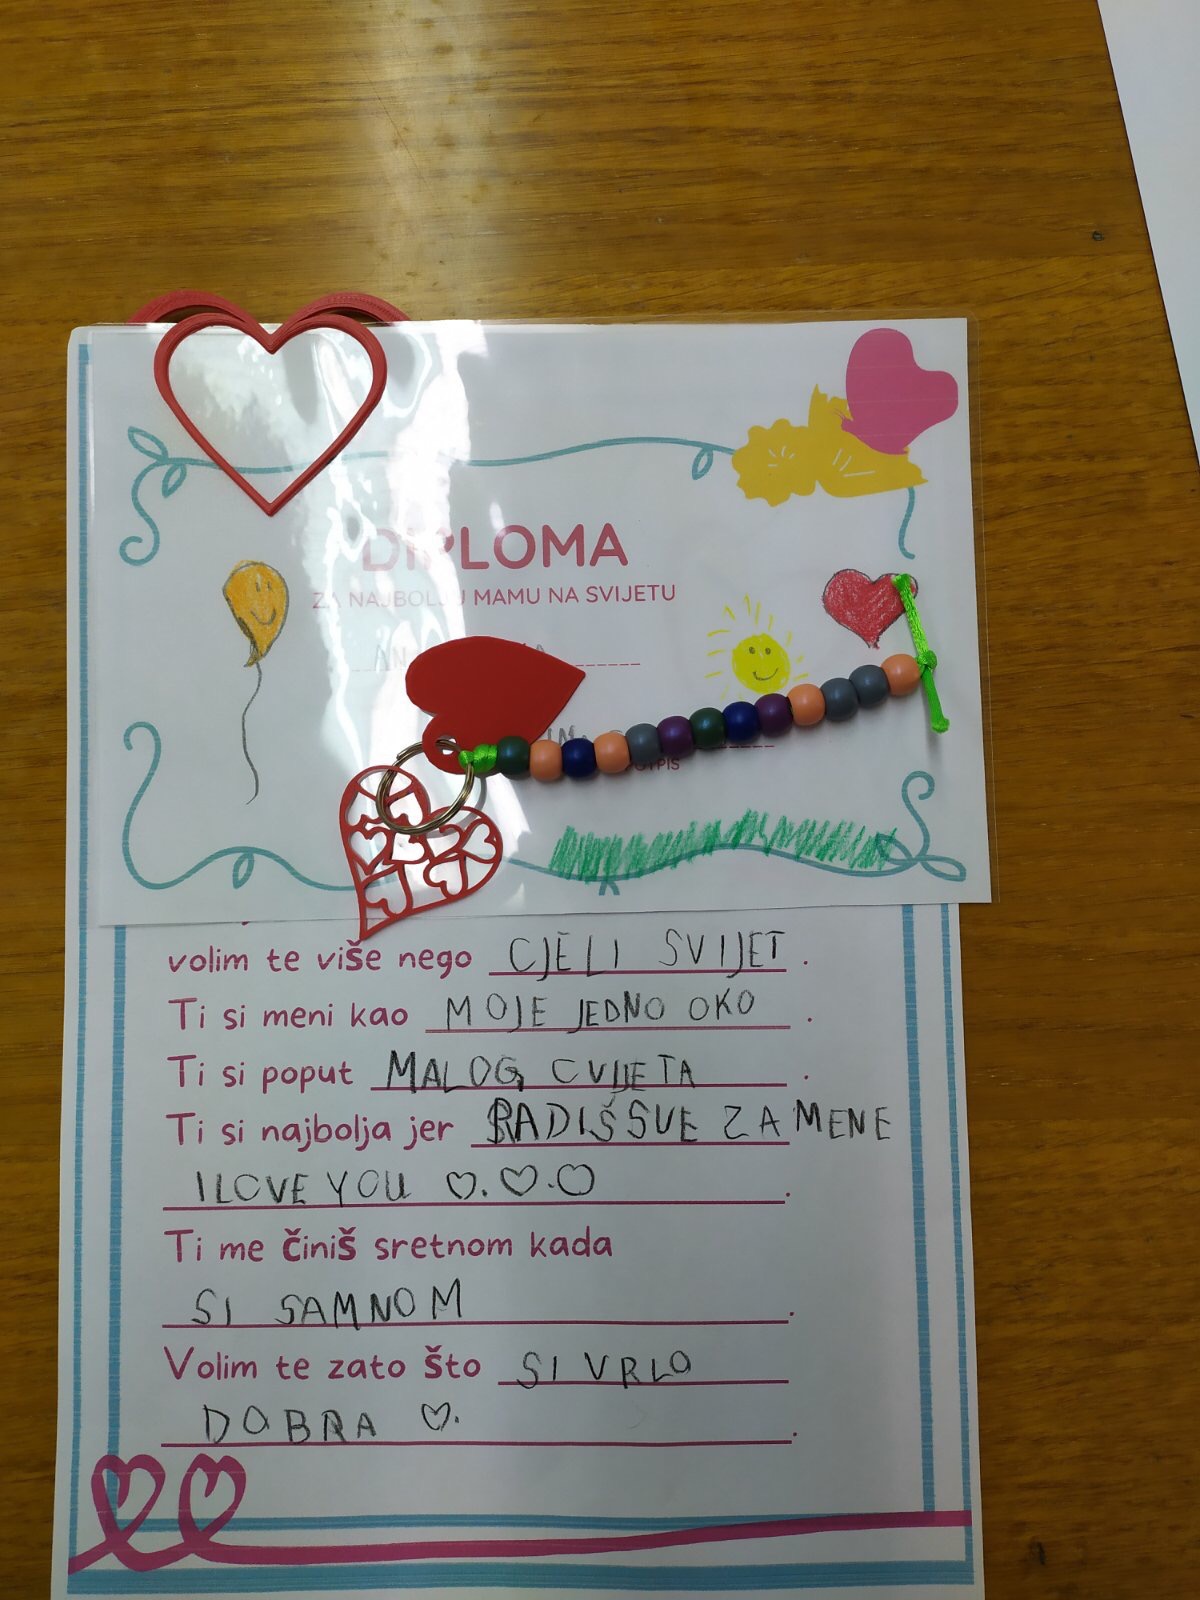 DIPLOMA
ZA NAJBOLJU MAMU NA SVIJETU
POTPIS
volim te više nego CJELI SVIJET.
Ti si meni kao MOJE JEDNO OKO.
Ti si poput MALOG CVIJETA.
Ti si najbolja jer RADIŠ SVE ZA MENE
I LOVE YOU ♡.♡.♡.
Ti me činiš sretnom kada
SI SAMNOM.
Volim te zato što SI VRLO
DOBRA ♡.